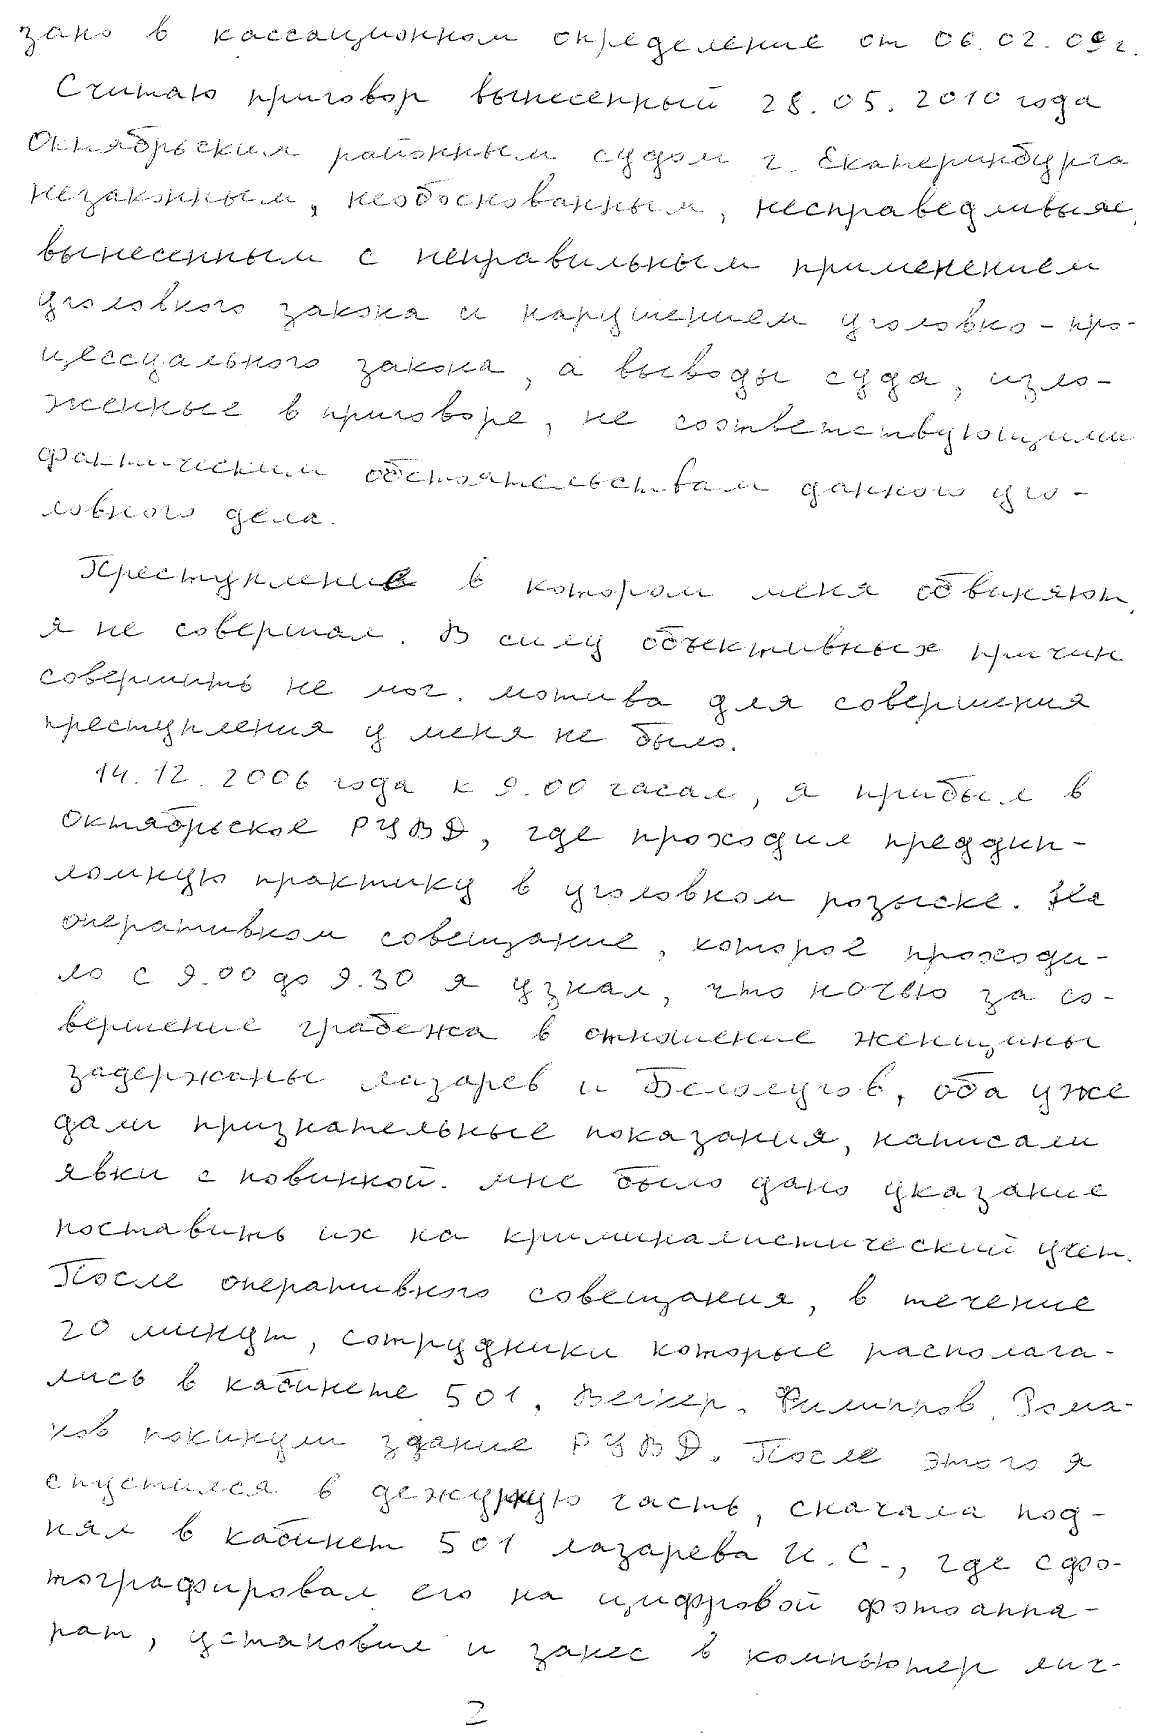 зано в кассационном определение от 06.02.09г.
Считаю приговор вынесенный 28.05.2010 года
Октябрьским районным судом г. Екатеринбурга
незаконным, необоснованным, несправедливым,
вынесенным с неправильным применением
уголовного закона и нарушением уголовно-про-
цессуального закона, а выводы суда, изло-
женные в приговоре, не соответствующими
фактическим обстоятельствам данного уго-
ловного дела.
Преступление в котором меня обвиняют,
я не совершал. В силу объективных причин
совершить не мог. мотива для совершения
преступления у меня не было.
14.12.2006 года к 9.00 часам, я прибыл в
Октябрьское РУВД, где проходил преддип-
ломную практику в уголовном розыске. На
оперативном совещание, которое проходи-
ло с 9.00 до 9.30 я узнал, что ночью за со-
вершение грабежа в отношение женщины
задержаны лазарев и Белолугов, оба уже
дали признательные показания, написали
явки с повинной. мне было дано указание
поставить их на криминалистический учет.
После оперативного совещания, в течение
20 минут, сотрудники которые располага-
лись в кабинете 501, Вегнер, Филиппов, Рома-
нов покинули здание РУВД. После этого я
спустился в дежурную часть, сначала под-
нял в кабинет 501 лазарева И.С., где сфо-
тографировал его на цифровой фотоаппа-
рат, установил и занес в компьютер лич-
2